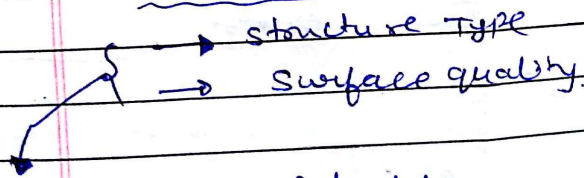 → Structure Type
→ Surface quality.